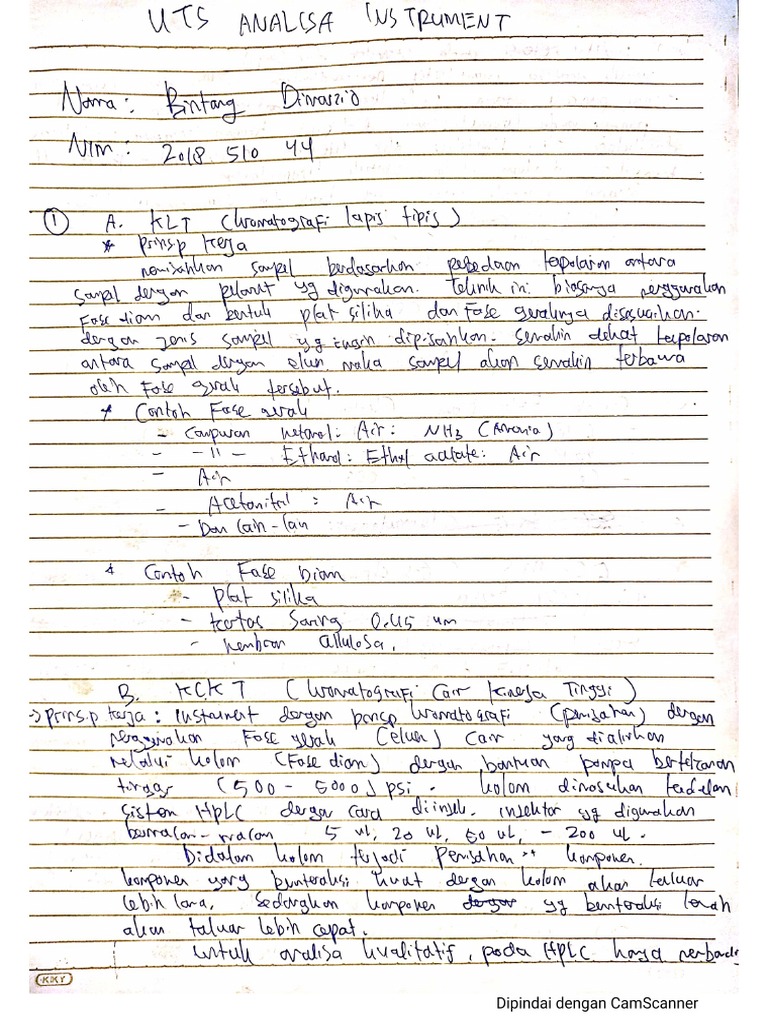 UTS ANALISA INSTRUMENT
Nama : Bintang Dimarzio
NIM : 2018 510 44
① A. KLT (kromatografi lapis tipis)
* Prinsip kerja
memisahkan sampel berdasarkan perbedaan kepolaran antara
sampel dengan pelarut yg digunakan. Teknik ini biasanya menggunakan
fase diam dari bentuk plat silika dan fase geraknya disesuaikan
dengan jenis sampel yg ingin dipisahkan. Semakin dekat kepolaran
antara sampel dengan eluen maka sampel akan semakin terbawa
oleh fase gerak tersebut.
* Contoh Fase gerak
- Campuran metanol : Air : NH3 (Amonia)
- -11- Ethanol : Ethyl acetate : Air
- Air
- Acetonitril : Air
- Dan lain-lain
* Contoh Fase Diam
- Plat silika
- kertas saring 0.45 um
- Membran cellulosa.
B. KCKT (kromatografi Cair Kinerja Tinggi)
-> prinsip kerja : instrument dengan prinsip kromatografi (pemisahan) dengan
menggunakan Fase gerak (eluen) Cair yang dialirkan
melalui kolom (Fase diam) dengan bantuan pompa bertekanan
tinggi (500 - 5000) psi. kolom dimasukan kedalam
sistem HPLC dengan cara diinjek. injektor yg digunakan
bermacam-macam 5 ul, 20 ul, 50 ul, - 200 ul.
Didalam kolom terjadi pemisahan komponen.
komponen yang berinteraksi kuat dengan kolom akan keluar
lebih lama, sedangkan komponen yg berinteraksi lemah
akan keluar lebih cepat.
Untuk analisa kualitatif, pada HPLC hanya
KKY
Dipindai dengan CamScanner